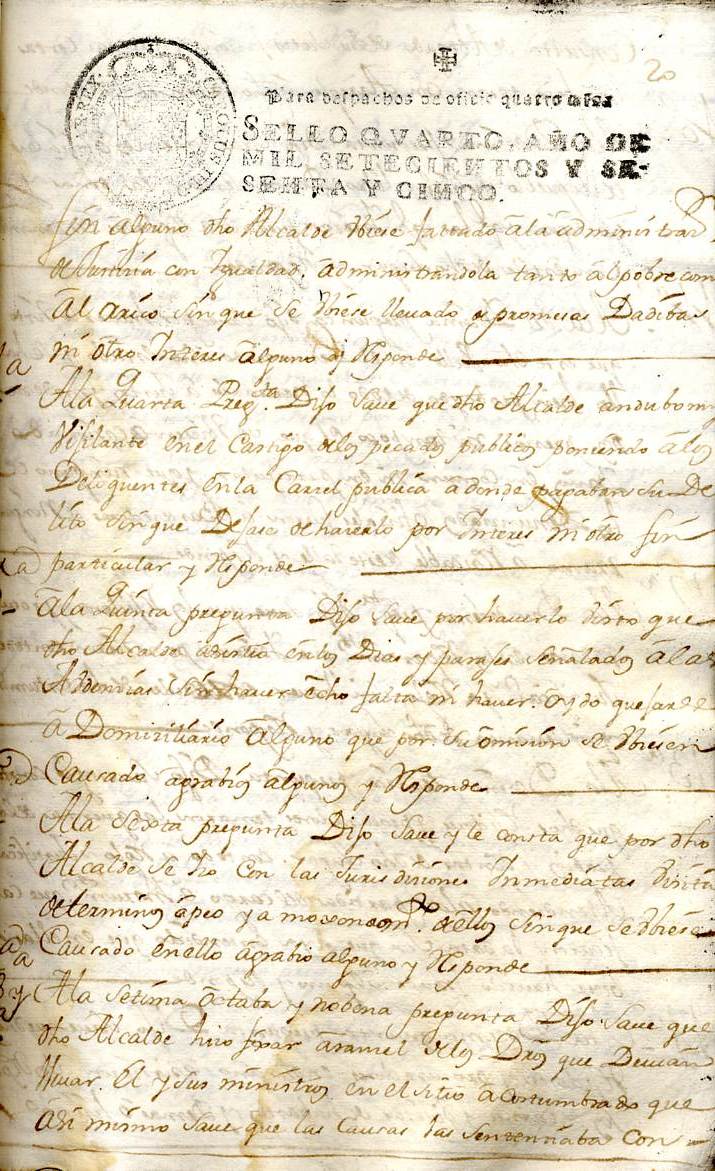 20
Para despachos de oficio quatro mrs.
SELLO QVARTO, AÑO DE
MIL SETECIENTOS Y SE-
SENTA Y CINCO.
CAROLUS III REX
fin alguno dho Alcalde vbiese faltado â la administraz.
de Justicia con Igualdad, administrandola tanto al pobre com
âl rrico sin que se vbiese llevado de promesas Dadibas
ni otro Interes alguno y Responde
A la Quarta Preg.ta Dijo Save que dho Alcalde andubo
Vijilante en el Castigo de los pecados publicos poniendo â los
Delinquentes en la Carcel publica a donde pagaban su De
lito sin que Dejase de hacerlo por Interes ni otro fin
particular y Responde
â la Quinta pregunta Dijo Save por haverlo visto que
dho Alcalde asistia en los Dias y parajes señalados â las
Audiencias sin haver echo falta ni haver oydo quejarse
â Domiziliario alguno que por su omision se vbiesen
Causado agrabios algunos y Responde
A la sexta pregunta Dijo Save y le consta que por dho
Alcalde se hizo con las Jurisdiziones Inmediatas visita
de terminos apeo y amoxonam.to de ellos sin que se vbiese
Causado en ello agrabio alguno y Responde
A la setima octaba y nobena pregunta Dijo Save que
dho Alcalde hizo fixar aranzel de los Dros que Devian
llevar El y sus ministros en el sitio acostumbrado que
asi mismo save que las Causas las sentenziaba con